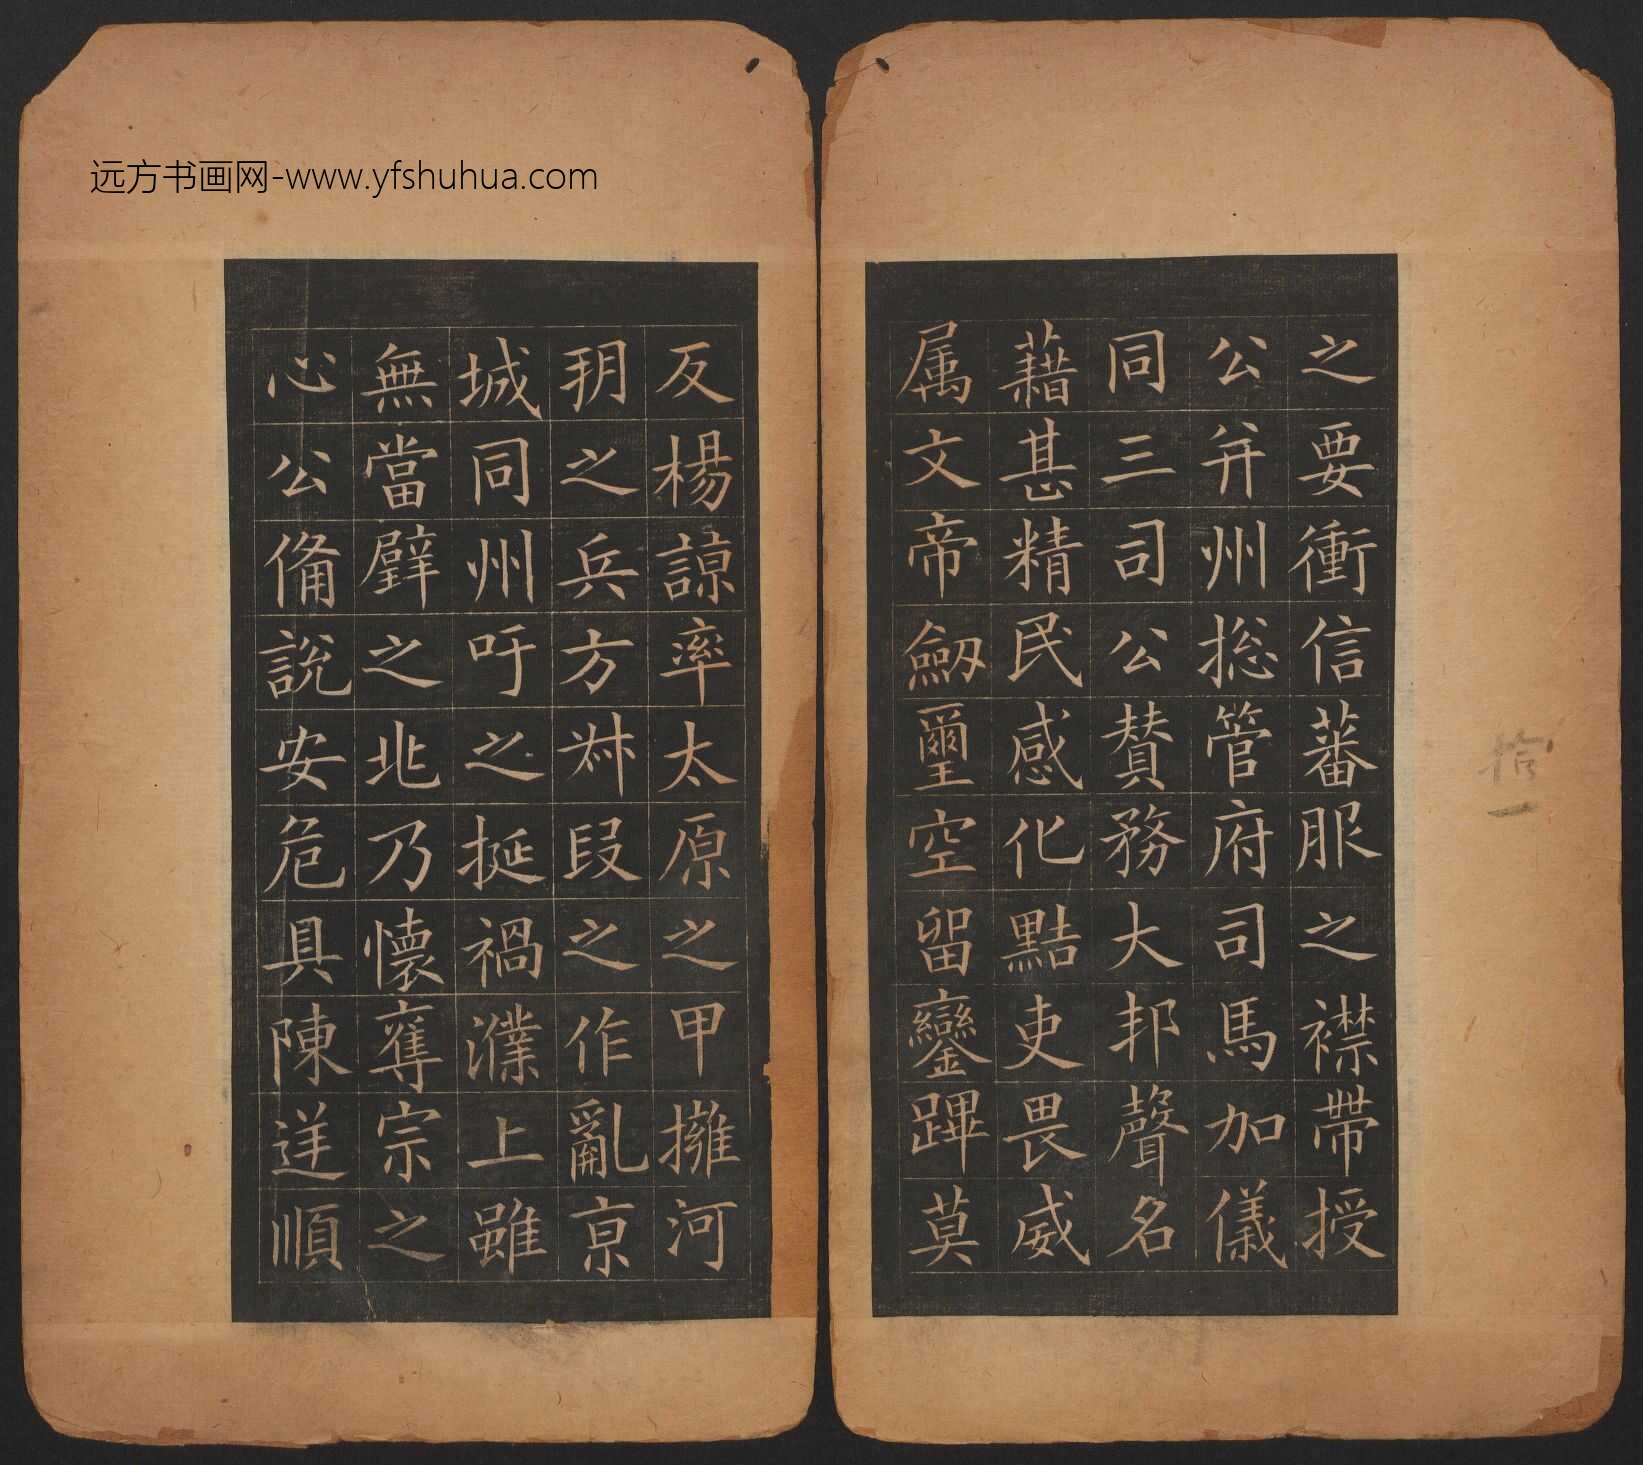 远方书画网-www.yfshuhua.com
之要衝信蕃服之襟帶授
公并州揔管府司馬加儀
同三司公贊務大邦聲名
藉甚精民感化黠吏畏威
属文帝劒璽空留鑾蹕莫
反楊諒率太原之甲擁河
朔之兵方叔段之作亂亰
城同州吁之挺禍濮上雖
無當璧之兆乃懷奪宗之
心公備說安危具陳逆順
拾一